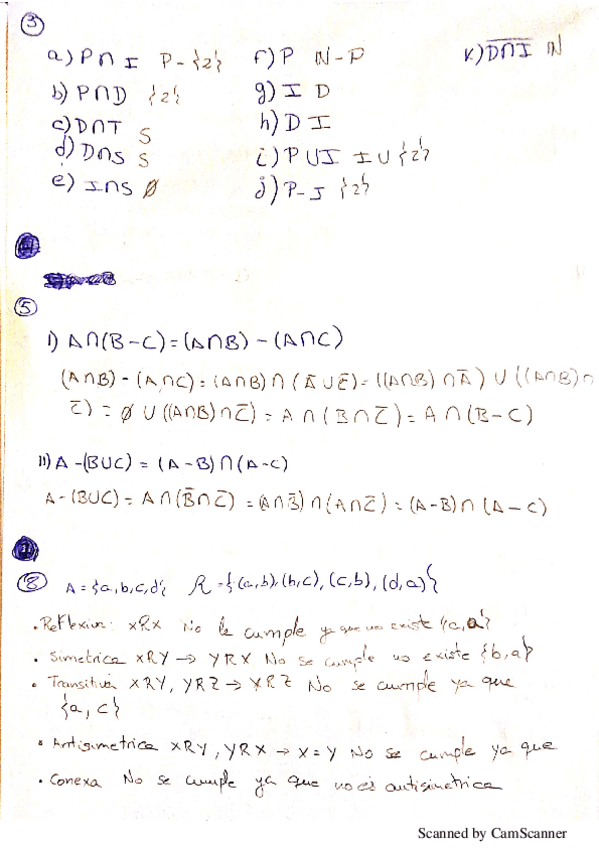 ③
a) P∩I P-{2}
b) P∩D {2}
c) D∩T S
d) D∩S S
e) I∩S ∅
f) P N-P
g) I D
h) D I
i) P∪I I∪{2}
j) P-I {2}
k) D̅∩̅I̅ N
⑤
I) A∩(B-C)=(A∩B)-(A∩C)
(A∩B)-(A∩C)=(A∩B)∩(A̅∪C̅)=((A∩B)∩A̅)∪((A∩B)∩
C̅)=∅∪((A∩B)∩C̅)=A∩(B∩C̅)=A∩(B-C)
II) A-(B∪C)=(A-B)∩(A-C)
A-(B∪C)=A∩(B̅∩C̅)=(A∩B̅)∩(A∩C̅)=(A-B)∩(A-C)
⑧ A={a,b,c,d} R={(a,b),(b,c),(c,b),(d,a)}
• Reflexiva: xRx No se cumple ya que no existe {a,a}
• Simetrica xRY → YRX No se cumple no existe {b,a}
• Transitiva xRY, YRZ → XRZ No se cumple ya que
{a,c}
• Antisimetrica xRY, YRX → X=Y No se cumple ya que
• Conexa No se cumple ya que no es antisimetrica
Scanned by CamScanner